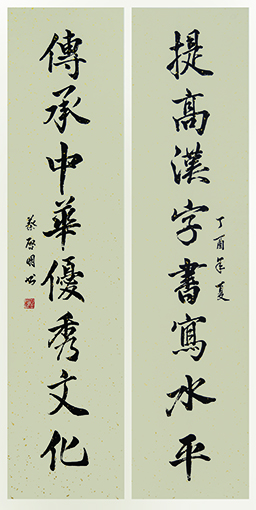 提高漢字書寫水平
丁酉年夏
傳承中華優秀文化
蔡啓國书